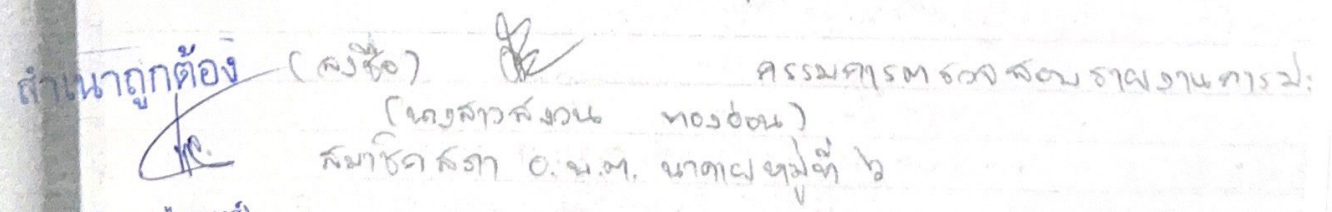 สำเนาถูกต้อง (ลงชื่อ) กรรมการตรวจสอบรายงานการประ
(นางสาวสงวน ทองอ่อน)
สมาชิกสภา อ.บ.ต. นาคายหมู่ที่ ๖